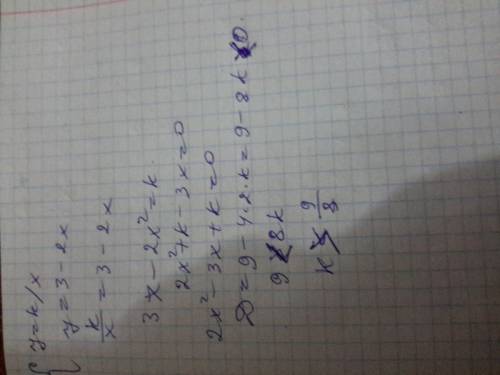 { y=k/x
y=3-2x
k/x=3-2x
3x-2x²=k.
2x²+k-3x=0
2x²-3x+k=0
D=9-4·2·k=9-8k<0.
9<8k
k>9/8